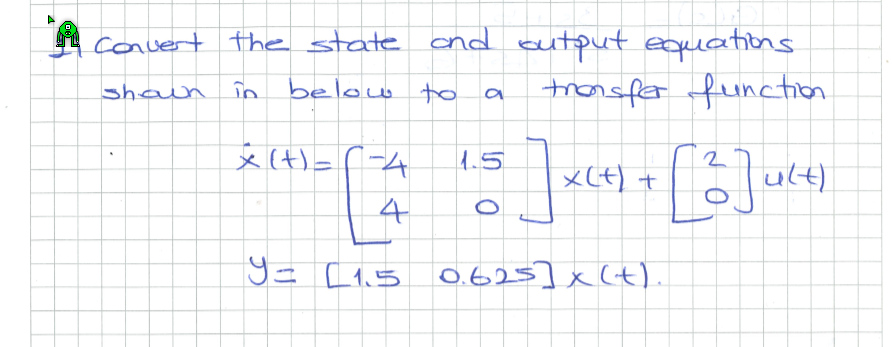 Convert the state and output equations
shown in below to a transfer function
ẋ(t) = [-4 1.5] x(t) + [2] u(t)
[4 0] [0]
y = [1.5 0.625] x(t).